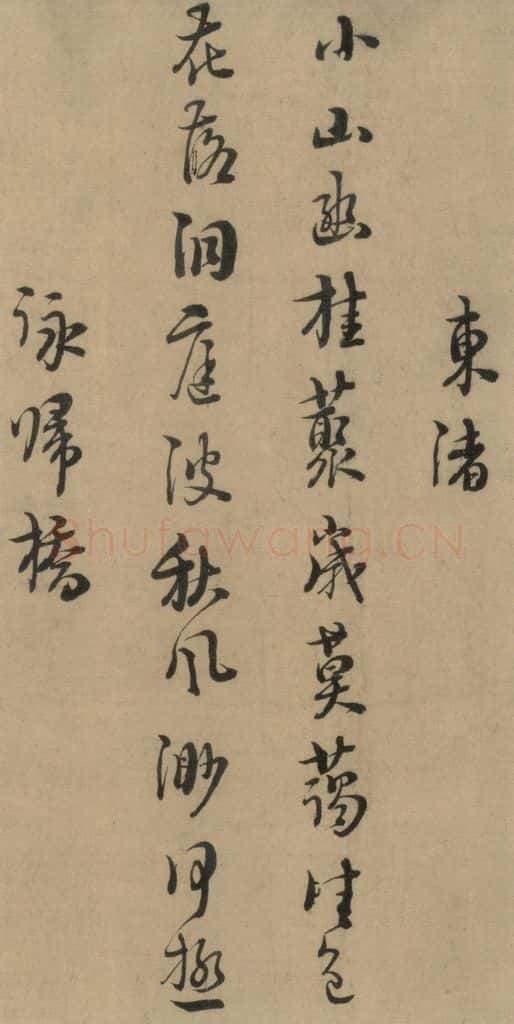 東渚
小山幽桂藂歲莫藹佳色
花落洞庭波秋風渺何極
詠歸橋
Shufawang.CN